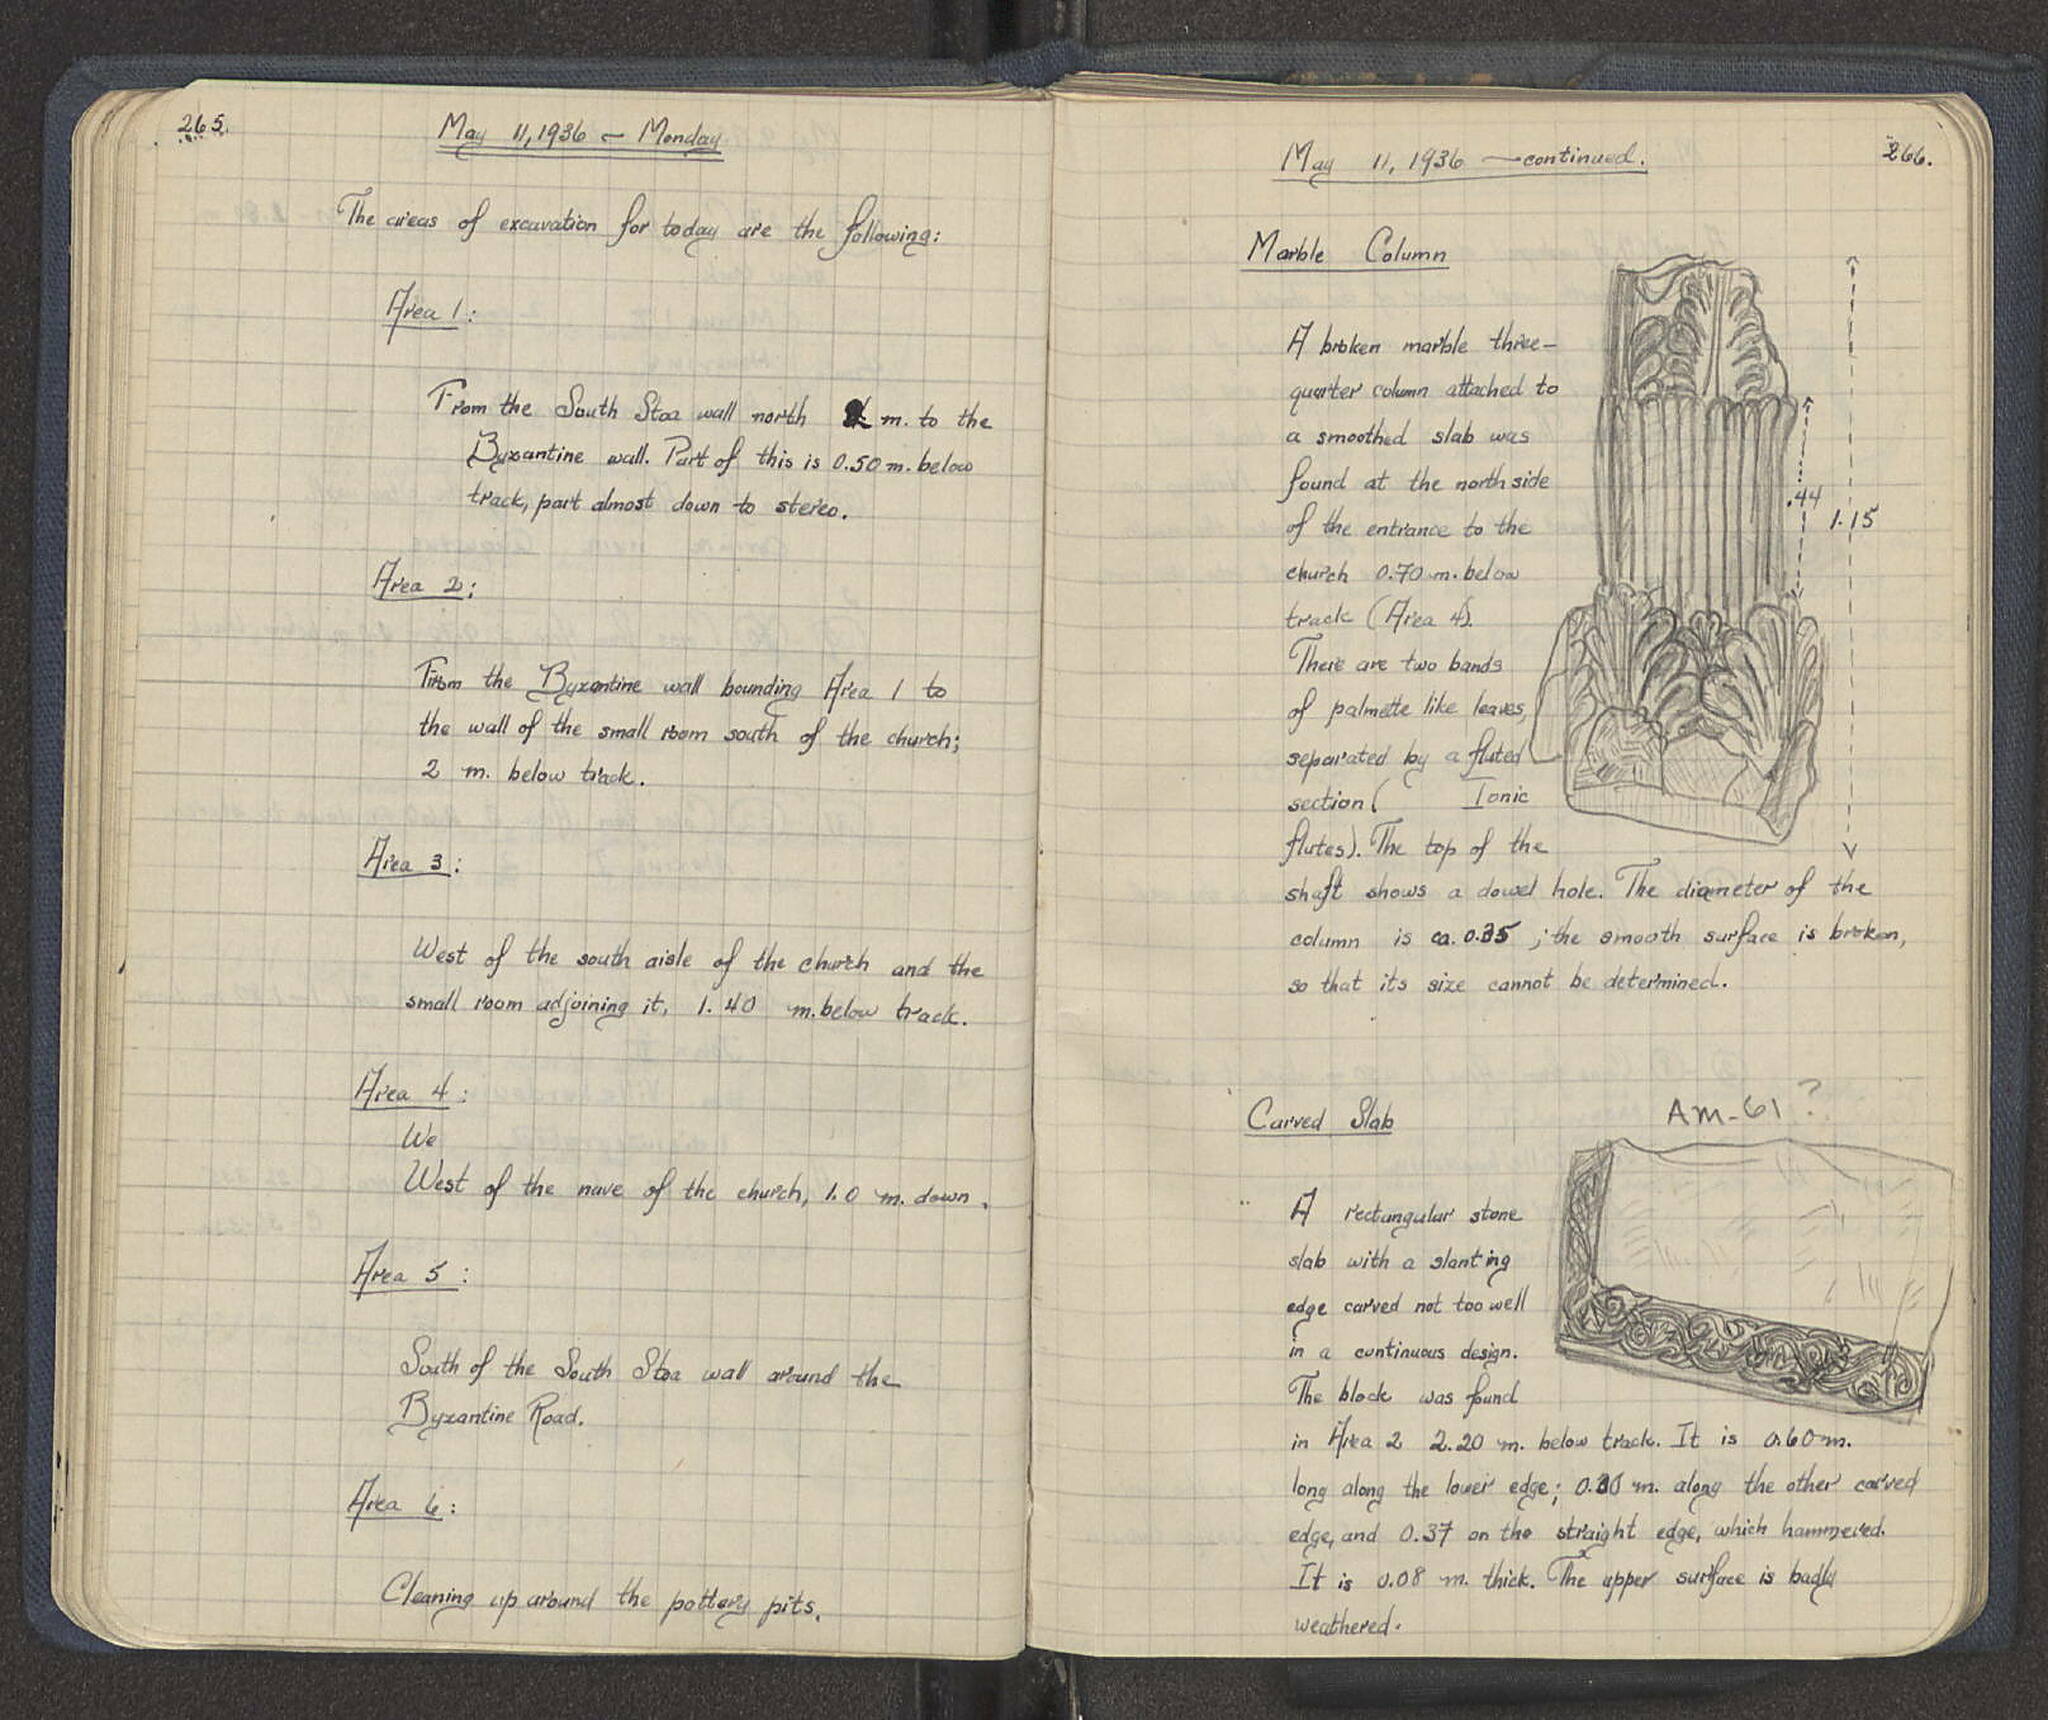 265.
May 11, 1936 - Monday
The areas of excavation for today are the following:
Area 1:
From the South Stoa wall north m. to the
Byzantine wall. Part of this is 0.50 m. below
track, part almost down to stereo.
Area 2:
From the Byzantine wall bounding Area 1 to
the wall of the small room south of the church;
2 m. below track.
Area 3:
West of the south aisle of the church and the
small room adjoining it, 1.40 m. below track.
Area 4:
We
West of the nave of the church, 1.0 m. down.
Area 5:
South of the South Stoa wall around the
Byzantine Road.
Area 6:
Cleaning up around the pottery pits.
May 11, 1936 - continued.
266.
Marble Column
A broken marble three-
quarter column attached to
a smoothed slab was
found at the north side
of the entrance to the
church 0.70 m. below
track (Area 4).
There are two bands
of palmette like leaves,
separated by a fluted
section ( Ionic
flutes). The top of the
shaft shows a dowel hole. The diameter of the
column is ca. 0.35 ; the smooth surface is broken,
so that its size cannot be determined.
.44
1.15
Carved Slab
AM-61?
A rectangular stone
slab with a slanting
edge carved not too well
in a continuous design.
The block was found
in Area 2 2.20 m. below track. It is 0.60 m.
long along the lower edge; 0.30 m. along the other carved
edge, and 0.37 on the straight edge, which hammered.
It is 0.08 m. thick. The upper surface is badly
weathered.